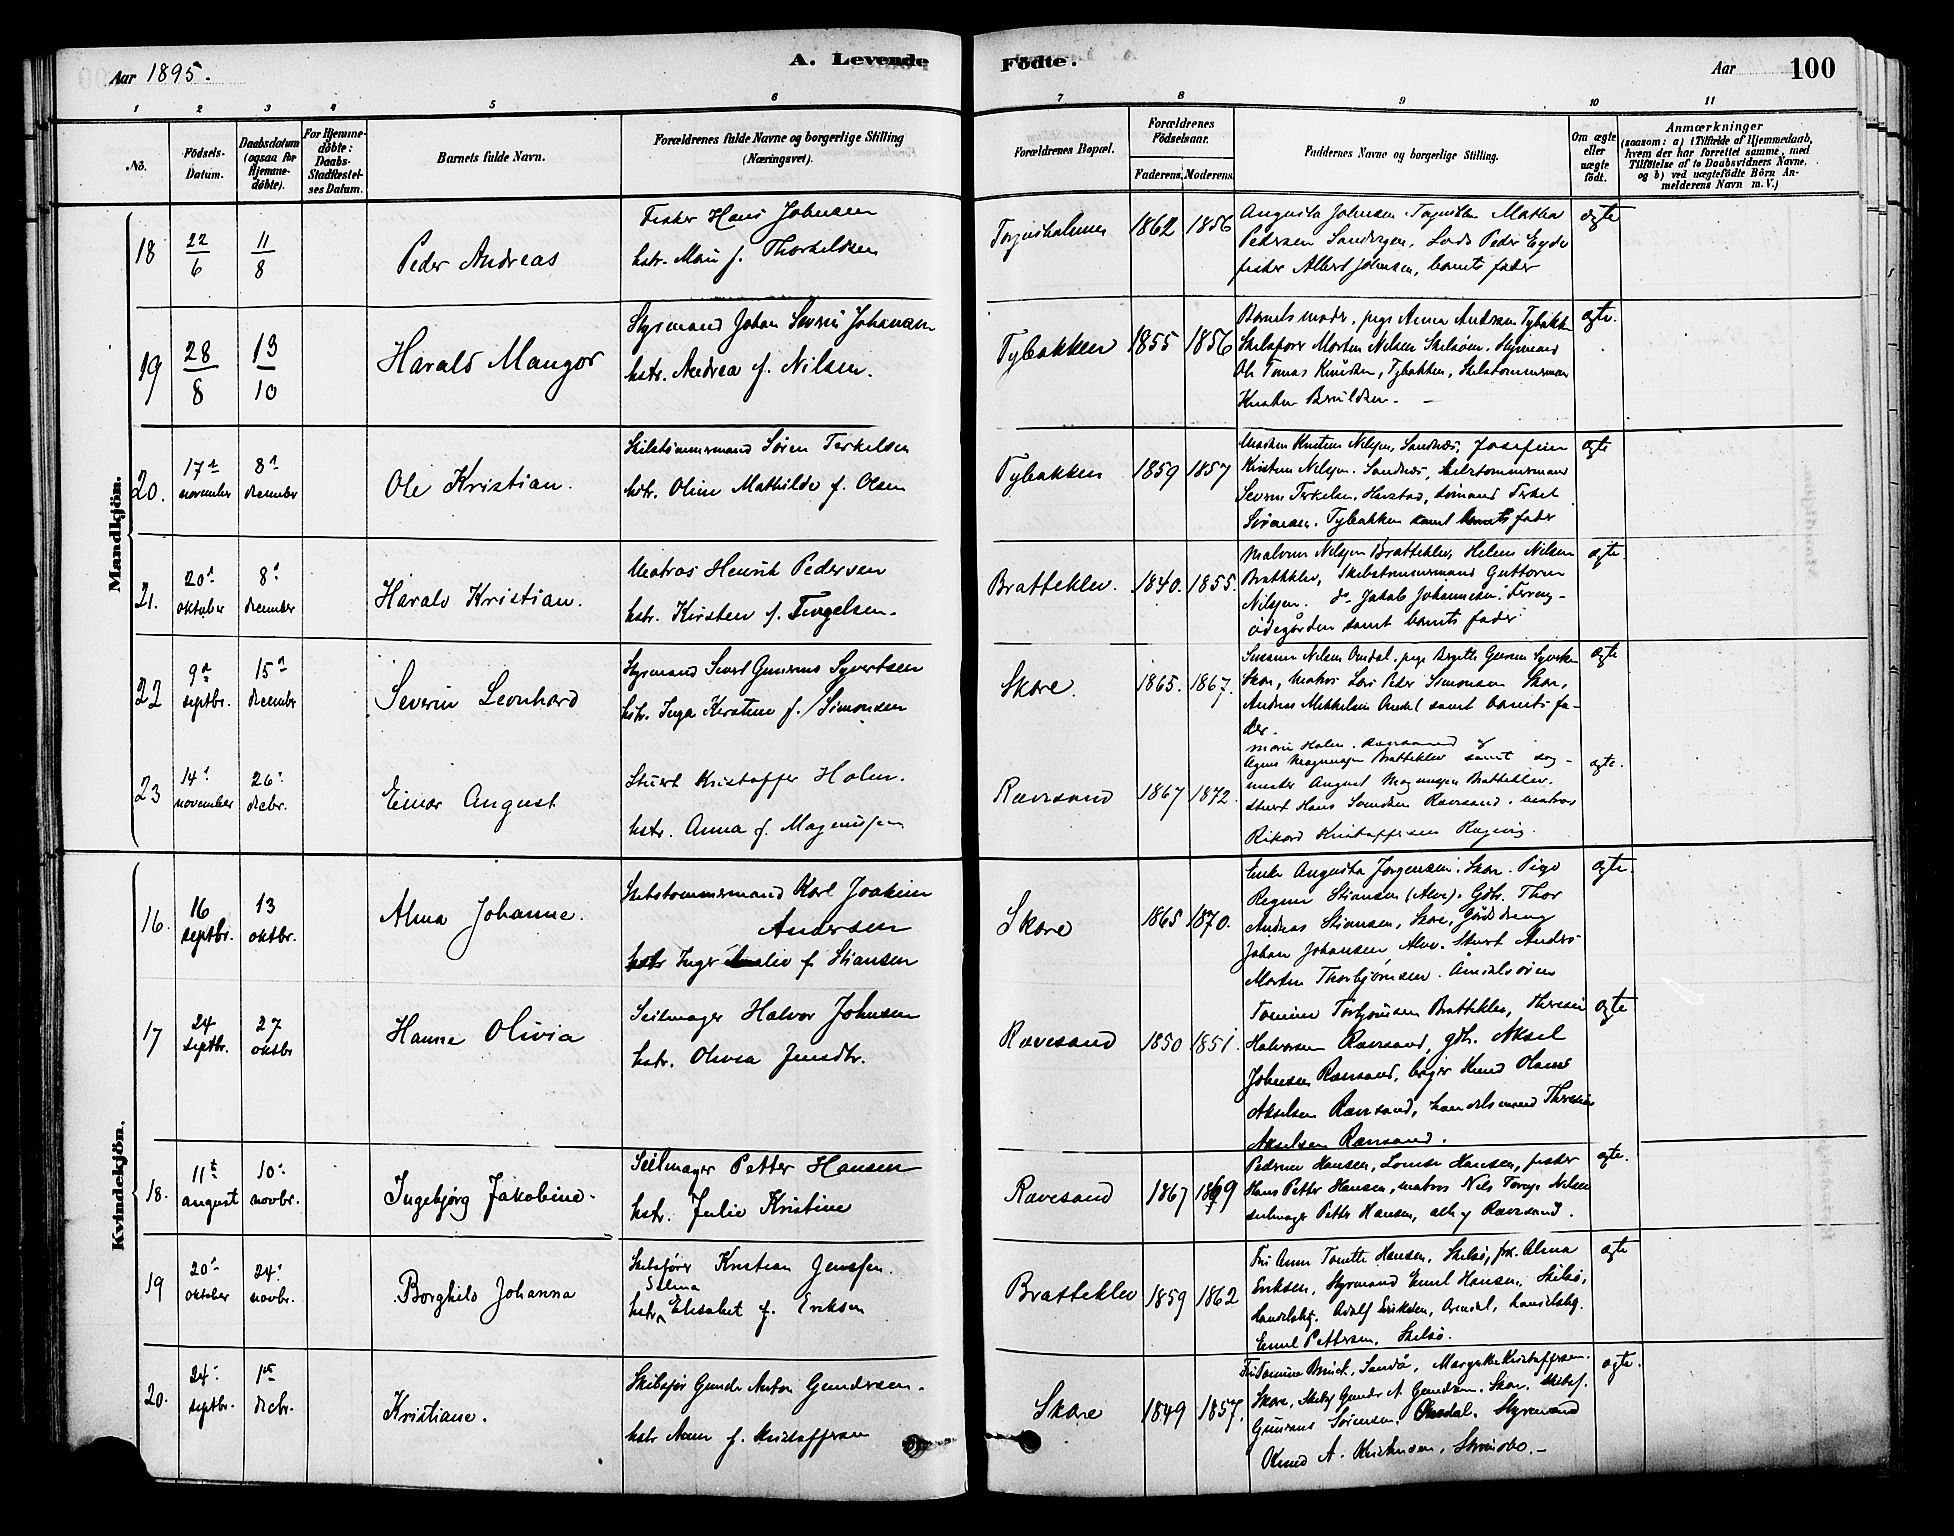 Aar 1895.
A. Levende
Födte.
Aar
100
1 2 3 4 5 6 7 8 9 10 11
No.
Födsels-
Datum.
Daabsdatum
(ogsaa for
Hjemme-
döbte).
For Hjemme-
döbte:
Daabs-
Stadfæstel-
ses Datum.
Barnets fulde Navn.
Forældrenes fulde Navne og borgerlige Stilling
(Næringsvei).
Forældrenes Bopæl.
Forældrenes
Födselsaar.
Faderens. Moderens.
Faddernes Navne og borgerlige Stilling.
Om ægte
eller
uægte
født.
Anmærkninger
(saasom: a) i Tilfælde af Hjemmedaab,
hvem der har forrettet samme, med
Tilföielse af to Daabsvidners Navne.
og b) ved uægtefödte Börn An-
melderens Navn m. V.)
Mandkjön.
18 22/6 11/8
Peder Andreas
Fisker Hans Johnsen
hstr. f. Thorkeldsen
1862 1856
Augusta Johnsen
Pedersen Peder Eyde
fisker Albert Johnsen, barnets fader
ægte
19 28/8 13/10
Harald Mangor
Styrmand Johan Severin Johansen
hstr. Andrea f. Nilsen.
Tybakken
1855 1856
Barnets moder, pige Anna Andersen Tybakken
Skibsfører Morten Nilsen Skilsøen. Styrmand
Ole Tomas Knutsen, Tybakken, Skibstømmermand
ægte.
20. 17de november 8de december
Ole Kristian.
Skibstømmermand Søren Terkelsen
hstr. Oline Mathilde f. Olsen
Tybakken
1859 1857
Kristen Nilsen, Sandnæs, Josefine
Kristine Nilsen. Sandnæs, Skibstømmermand
Severin Terkelsen, Havstad, sømand Terkel
Sørensen. Tybakken samt barnets fader
ægte
21. 20de oktober 8de december
Harald Kristian.
Matros Henrik Pedersen
hstr. Kirsten f. Torgelsen.
Brattekleiv.
1840. 1855.
Malvine Nilsen Brattekleiv, Helene Nilsen
Brattekleiv, Skibstømmermand Guttorm
Nilsen. do Jakob Johannesen.
ødegården samt barnets fader
ægte.
22 9de septbr. 15de december
Severin Leonhard
Styrmand Sivert Gunerius Syvertsen
hstr. Inga Kirstine f. Simonsen
Skare.
1865. 1867.
Susanne Nilsen Omdal. pige Birgitte
Skare, matros Lars Peder Simonsen Skare,
Andreas Mikkelsen Omdal samt barnets fa-
der.
ægte
23 14de november 26de decbr.
Einar August
Stuert Kristoffer Holm.
hstr. Anna f. Magnussen
Rævesand
1867 1872.
Marie Holm. Rævesand
Agnes Magnussen Brattekleiv samt
August Magnussen Brattekleiv.
stuert Hans Rævesand. matros
Rikard Kristoffersen
ægte.
Kvindekjön.
16. 16 septbr. 13 oktbr.
Alma Johanne.
Skibstømmermand Karl Joakim
Andersen
hstr Inger Amalie f. Stiansen
Skare
1865 1870.
Enke Augusta Jørgensen. Skare. Pige
Regine Stiansen (Alve). Gdbr. Thor
Andreas Stiansen, Skare, Gårddreng
Johan Johansen Alve. Stuert Andreas
Morten Thorbjørnsen.
ægte.
17 24 septbr. 27 oktbr
Hanne Olivia
Seilmager Halvor Johnsen
hstr. Olivia
Rævesand
1850 1851.
Tomine Torbjørnsen Brattekleiv, Theresie
Halvorsen Rævesand, gbr. Aksel
Johnsen Rævesand, Knud Olaus
Akselsen Rævesand, handelsmand
Akselsen Rævesand.
ægte
18. 11te august 10de novbr.
Ingebjørg Jakobine.
Seilmager Petter Hansen
hstr. Julie Kristine
Rævesand
1867 1869
Pedrine Hansen, Lovise Hansen, fisker
Hans Petter Hansen, matros Nils Nilsen
seilmager Petter Hansen, alle af Rævesand.
ægte.
19 20de oktober 24de novbr.
Borghild Johanna
Skibsfører Kristian Jenssen.
Selma
hstr. Elisabet f. Eriksen
Brattekleiv
1859 1862
Fru Anne Tonette Hansen, Skilsø, frk. Alma
Eriksen, Styrmand Emil Hansen. Skilsø,
Handelsbtj. Adolf Eriksen, Arendal, handelsbtj.
Emil Pettersen, Skilsø.
ægte
20. 24de septbr. 1ste decbr.
Kristiane.
Skibsfør Gunder Anton Gundersen.
hstr Anne f. Kristoffersen
Skare
1849 1857.
Fru Tomine Sandø, Margrethe Kristoffersen.
Skare, Skibsf Gunder A Gundersen. Skare. Skibsf.
Sørensen. Omdal. Styrmand
A. Kristensen,
ægte.